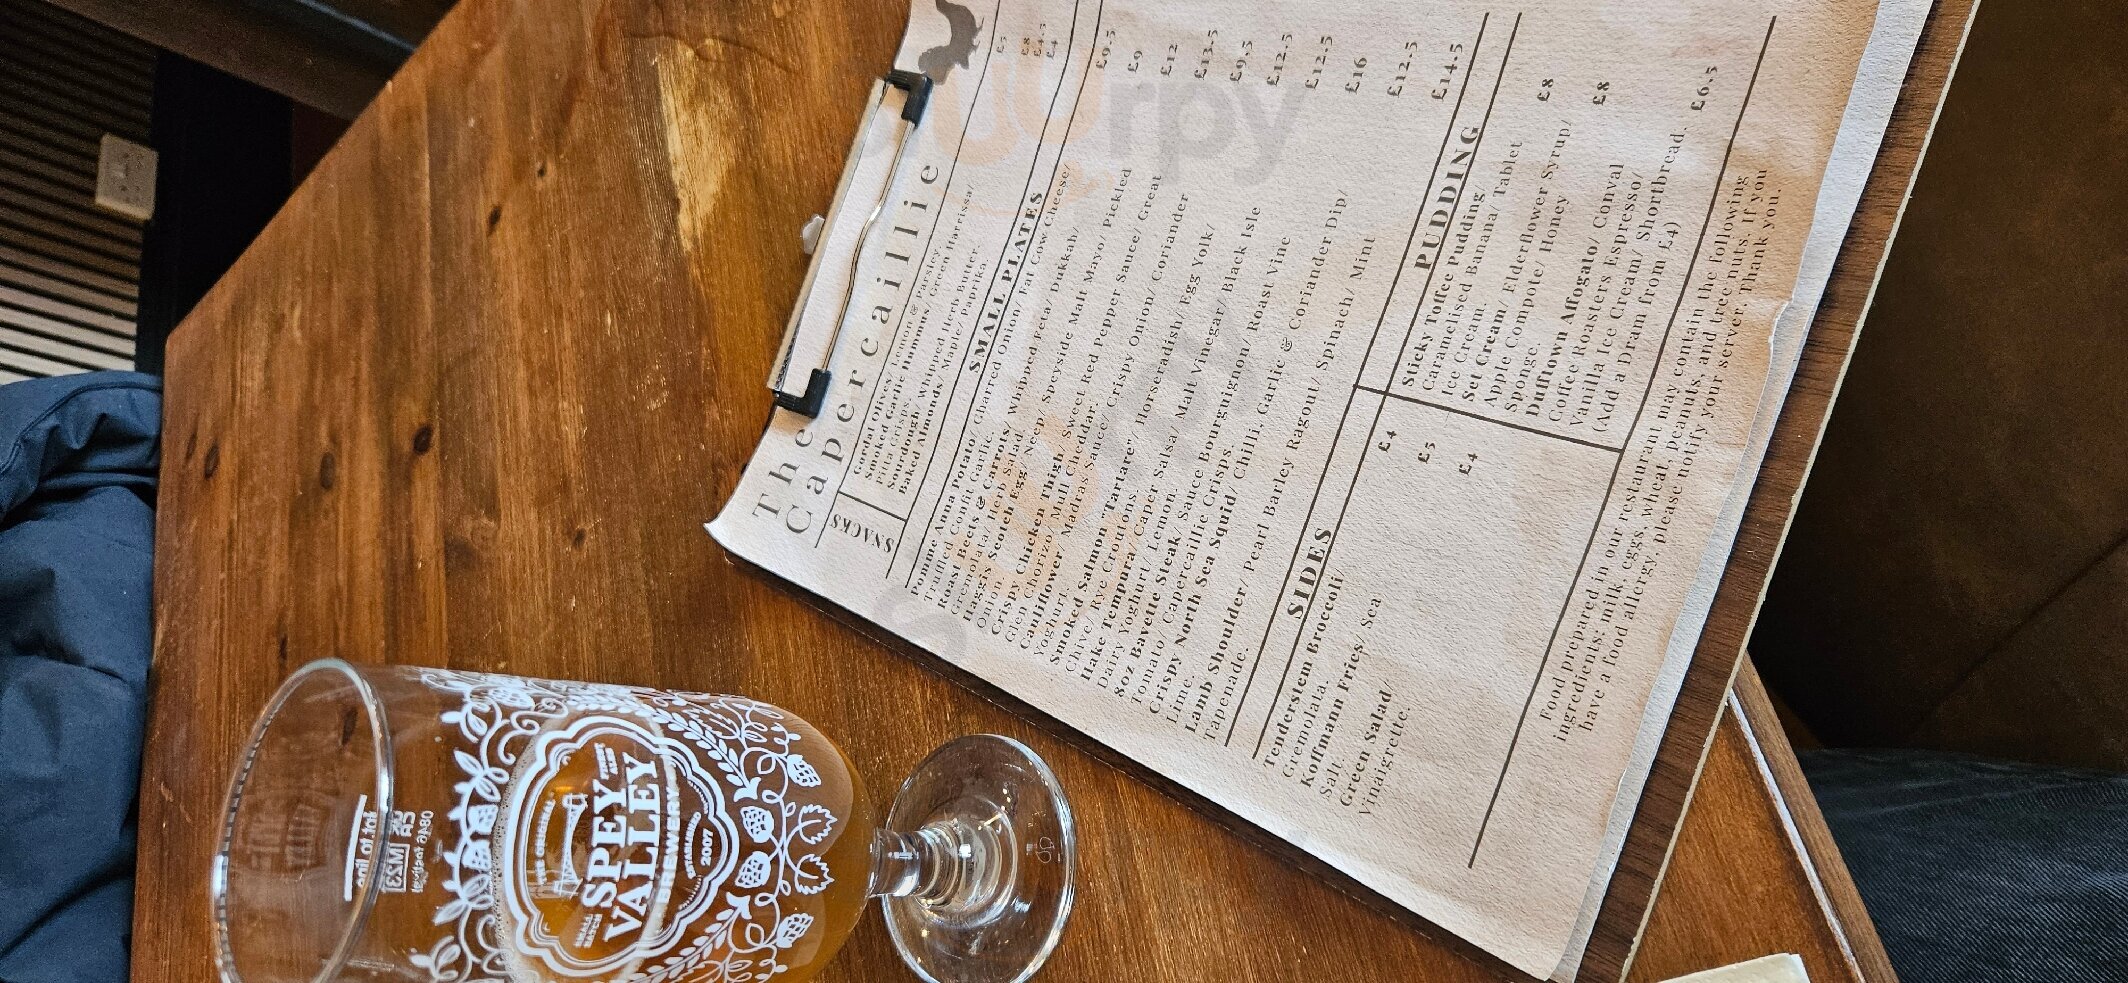 The
Capercaillie
SNACKS
Gordal Olives/ Lemon & Parsley. £5
Smoked Garlic Hummus/ Green Harrissa/
Pitta Crisps. £8
Sourdough/ Whipped Herb Butter. £4.5
Baked Almonds/ Maple/ Paprika. £4
SMALL PLATES
Pomme Anna Potato/ Charred Onion/ Fat Cow Cheese/
Truffled Confit Garlic. £9.5
Roast Beets & Carrots/ Whipped Feta/ Dukkah/
Gremolata/ Herb Salad. £9
Haggis Scotch Egg/ Neep/ SpeySide Malt Mayo/ Pickled
Onion. £12
Crispy Chicken Thigh/ Sweet Red Pepper Sauce/ Great
Glen Chorizo/ Mull Cheddar. £13.5
Cauliflower/ Madras Sauce/ Crispy Onion/ Coriander
Yoghurt. £9.5
Smoked Salmon "Tartare"/ Horseradish/ Egg Yolk/
Chive/ Rye Croutons. £12.5
Hake Tempura/ Caper Salsa/ Malt Vinegar/ Black Isle
Dairy Yoghurt/ Lemon. £12.5
8oz Bavette Steak/ Sauce Bourguignon/ Roast Vine
Tomato/ Capercaillie Crisps. £16
Crispy North Sea Squid/ Chilli, Garlic & Coriander Dip/
Lime. £12.5
Lamb Shoulder/ Pearl Barley Ragout/ Spinach/ Mint
Tapenade. £14.5
SIDES
Tenderstem Broccoli
Gremolata. £4
Koffmann Fries/ Sea
Salt. £5
Green Salad/
Vinaigrette. £4
PUDDING
Sticky Toffee Pudding/
Caramelised Banana/ Tablet
Ice Cream. £8
Set Cream/ Elderflower Syrup/
Apple Compote/ Honey
Sponge. £8
Dufftown Affogato/ Conval
Coffee Roasters Espresso/
Vanilla Ice Cream/ Shortbread.
(Add a Dram from £4) £6.5
Food prepared in our restaurant may contain the following
ingredients: milk, eggs, wheat, peanuts, and tree nuts. If you
have a food allergy, please notify your server. Thank you.
THE ORIGINAL
SPEY
VALLEY
BREWERY
SMALL
BATCH
ESTABLISHED
2007